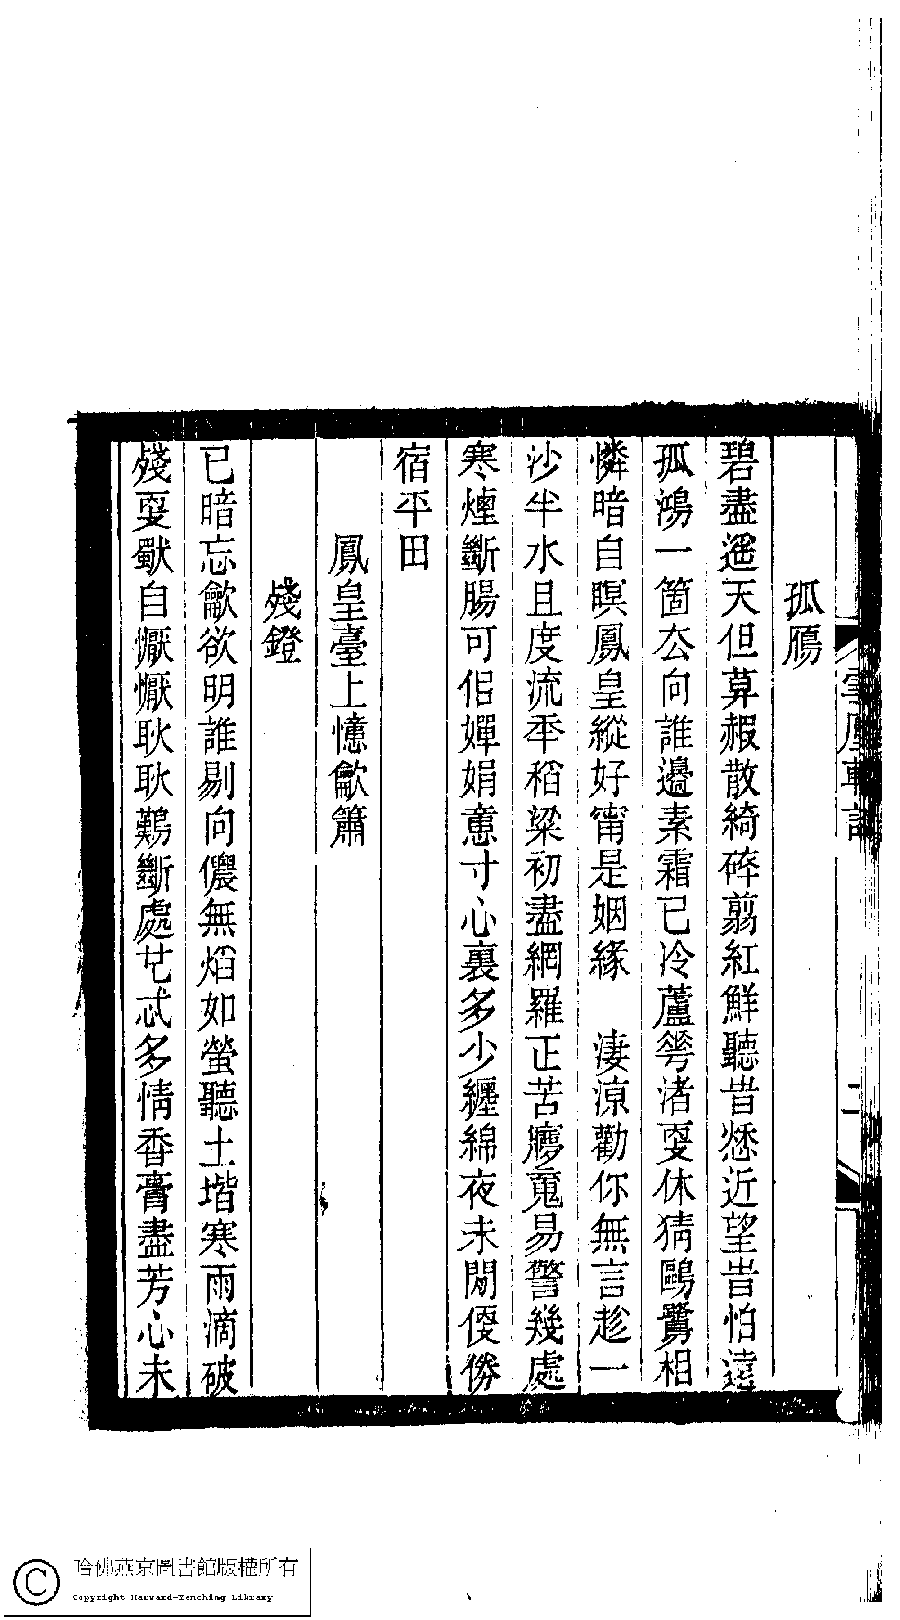 孤鴈
碧盡遙天但算赮散綺碎翦紅鮮聽旹愁近望旹怕遠
孤鴻一箇厺向誰邊素霜已冷蘆雩渚叓休猜鷗鷺相
憐暗自瞑鳳皇縱好甯是姻緣　淒涼勸伱無言趁一
沙半水且度流秊稻粱初盡網羅正苦㝱䰟易警幾處
寒煙斷腸可佀嬋娟意寸心裏多少纏綿夜未閒偄傍
宿平田
鳳皇臺上憶龡簫
殘鐙
已暗忘龡欲明誰剔向儂無焰如螢聽土堦寒雨滴破
殘叓歞自懨懨耿耿難斷處也忒多情香膏盡芳心未
雪壓軒詞
二
哈佛燕京圖書館版權所有
Copyright Harvard-Yenching Library